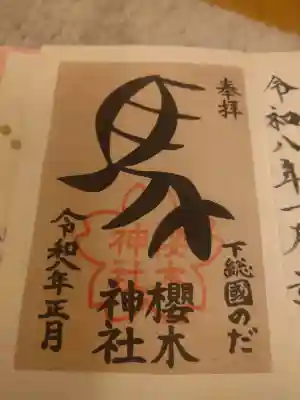 奉拝
下総國のだ
馬
櫻木
神社
櫻木
神社
令和八年正月
令和八年一月